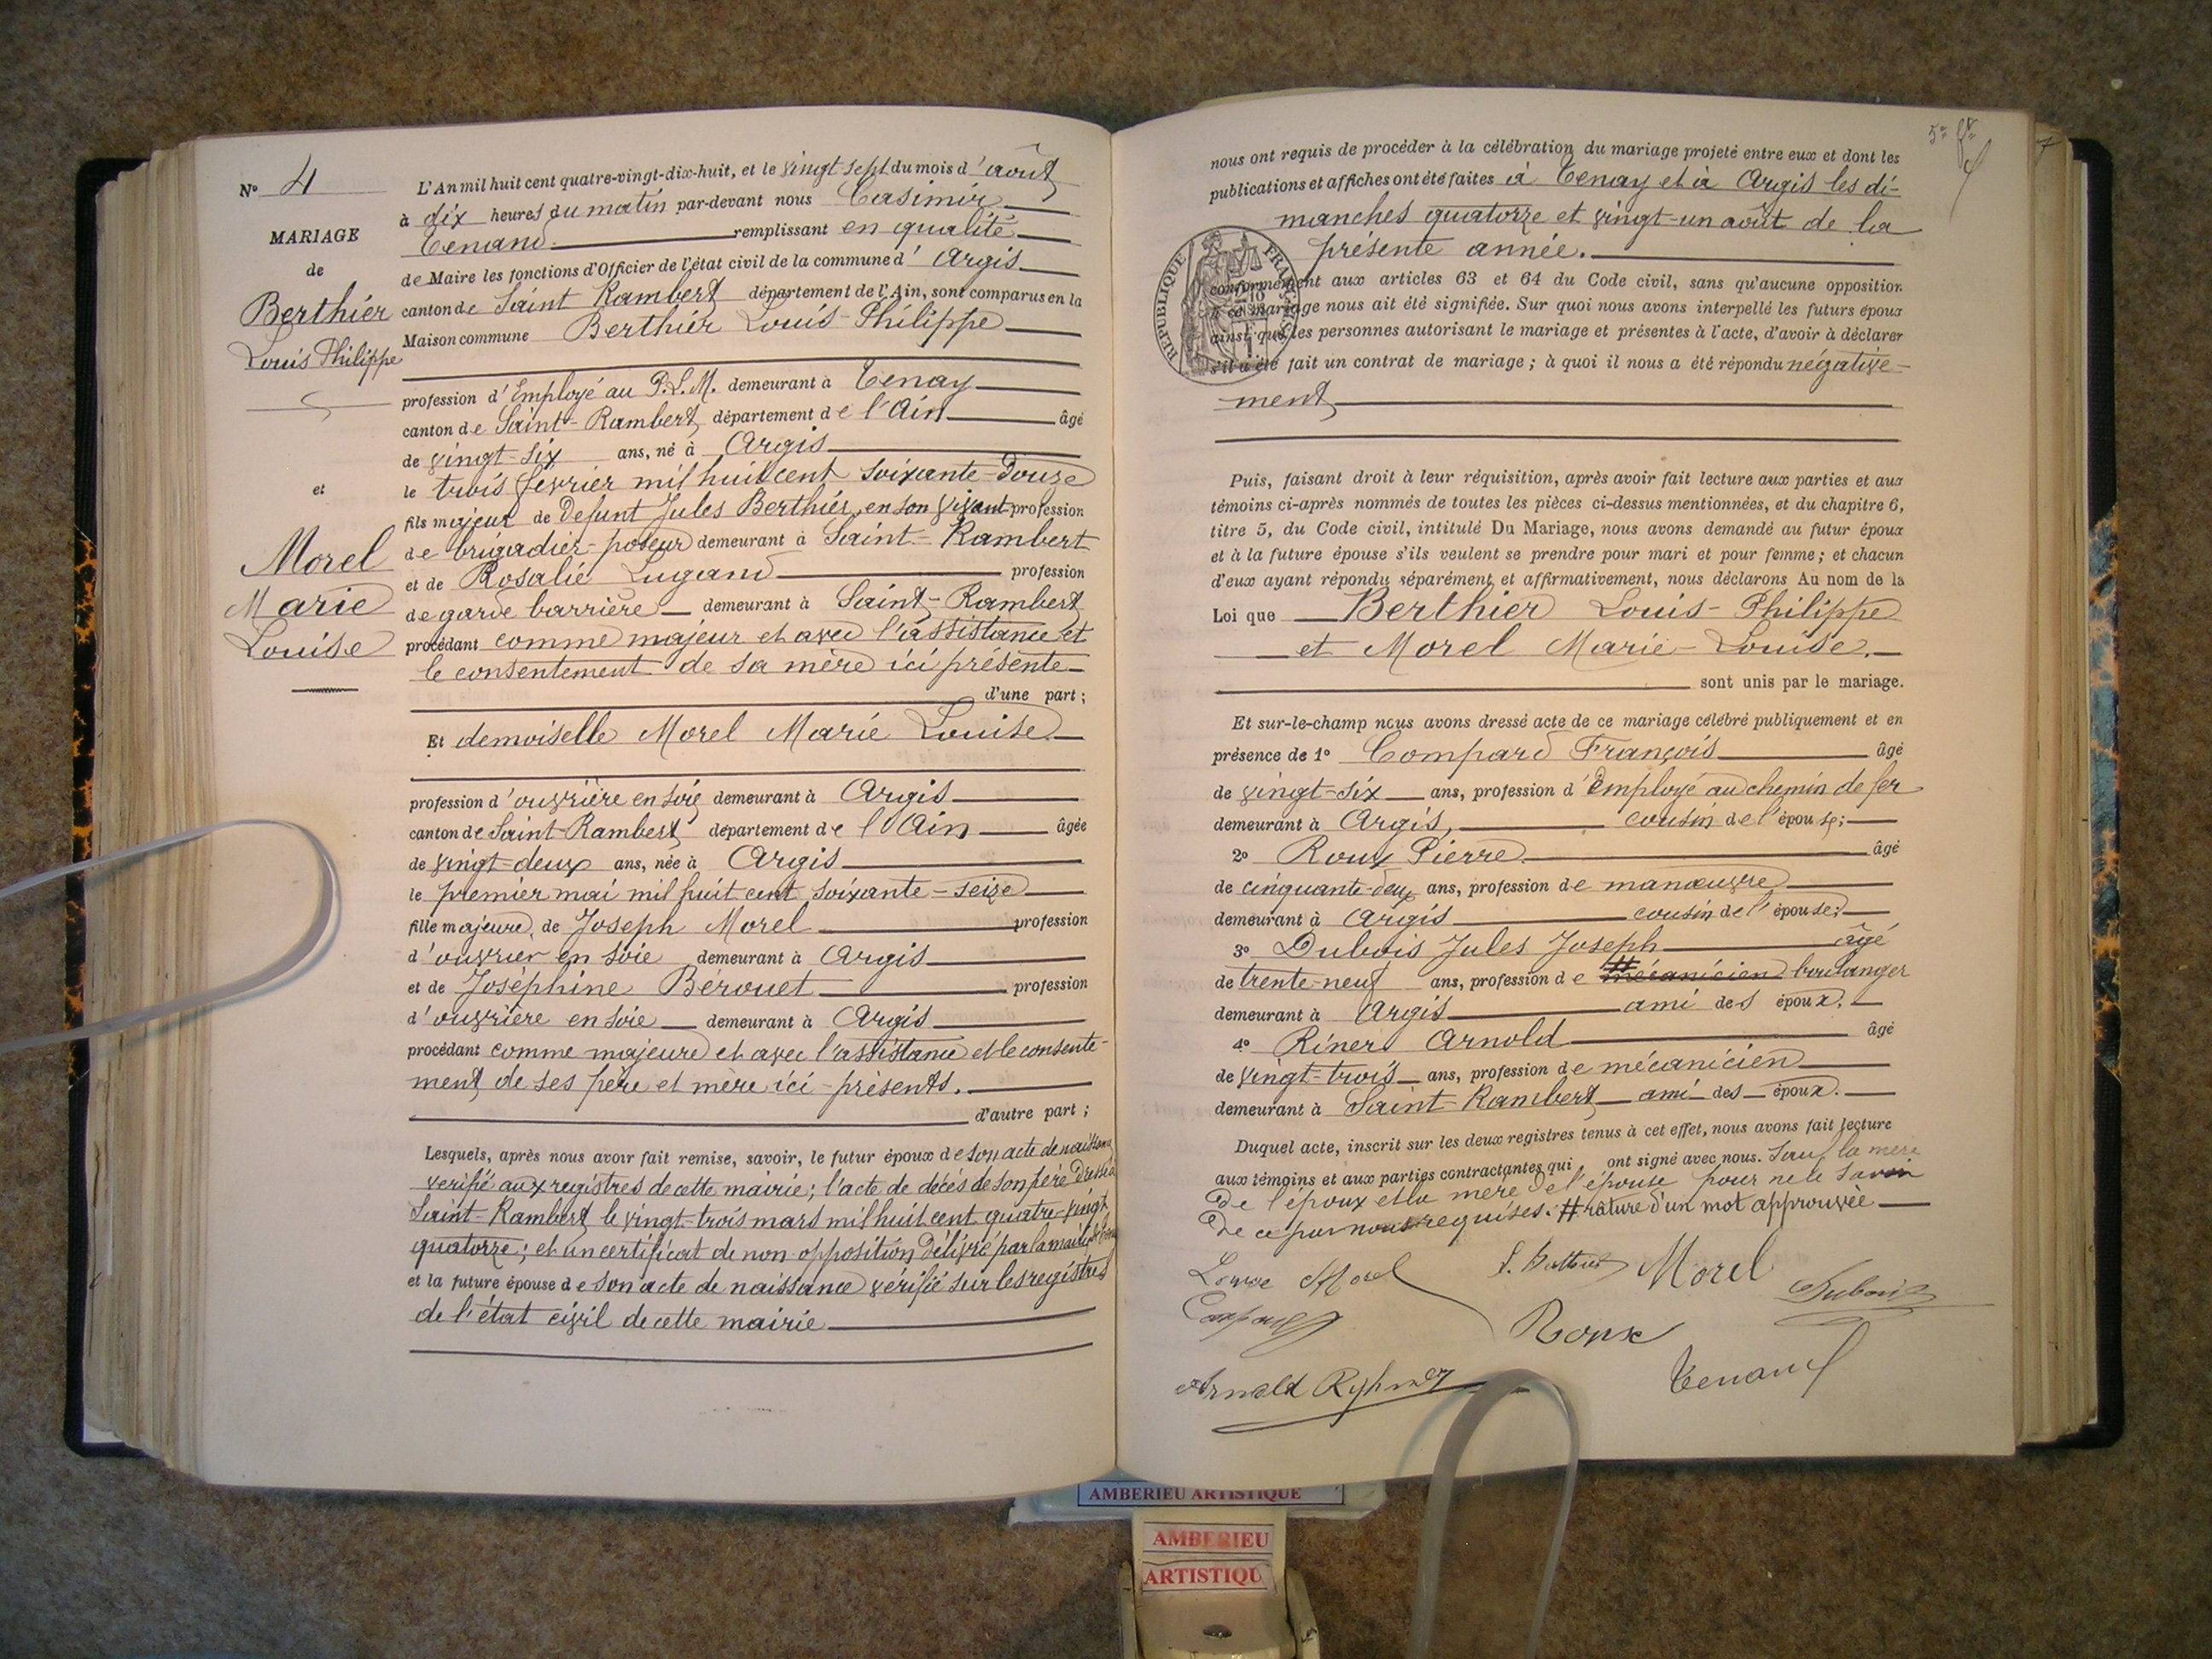 N° 4
MARIAGE
de
Berthier
Louis Philippe
et
Morel
Marie
Louise
L'An mil huit cent quatre-vingt-dix-huit, et le vingt sept du mois d'août
à dix heures du matin par-devant nous Casimir
Tenand remplissant en qualité
de Maire les fonctions d'Officier de l'état civil de la commune d'Argis
canton de Saint Rambert département de l'Ain, sont comparus en la
Maison commune Berthier Louis-Philippe
profession d'Employé au P.L.M. demeurant à Tenay
canton de Saint-Rambert département de l'Ain âgé
de vingt-six ans, né à Argis
le trois février mil huit cent soixante-douze
fils majeur de Défunt Jules Berthier, en son vivant profession
de brigadier-poseur demeurant à Saint-Rambert
et de Rosalie Lugand profession
de garde barrière demeurant à Saint-Rambert
procédant comme majeur et avec l'assistance et
le consentement de sa mère ici présente
d'une part ;
Et demoiselle Morel Marie Louise
profession d'ouvrière en soie demeurant à Argis
canton de Saint-Rambert département de l'Ain âgée
de vingt-deux ans, née à Argis
le premier mai mil huit cent soixante-seize
fille majeure de Joseph Morel profession
d'ouvrier en soie demeurant à Argis
et de Joséphine Bérouet profession
d'ouvrière en soie demeurant à Argis
procédant comme majeure et avec l'assistance et le consente-
ment de ses père et mère ici-présents.
d'autre part ;
Lesquels, après nous avoir fait remise, savoir, le futur époux de son acte de naissance
verifié aux registres de cette mairie ; l'acte de décès de son père Dressé à
Saint-Rambert le vingt-trois mars mil huit cent quatre-vingt
quatorze ; et un certificat de non opposition délivré par la mairie de Tenay
et la future épouse de son acte de naissance vérifié sur les registres
de l'état civil de cette mairie
5e
nous ont requis de procéder à la célébration du mariage projeté entre eux et dont les
publications et affiches ont été faites à Tenay et à Argis les di-
manches quatorze et vingt-un août de la
présente année.
RÉPUBLIQUE FRANÇAISE
conformément aux articles 63 et 64 du Code civil, sans qu'aucune opposition
à ce mariage nous ait été signifiée. Sur quoi nous avons interpellé les futurs époux
ainsi que les personnes autorisant le mariage et présentes à l'acte, d'avoir à déclarer
s'il a été fait un contrat de mariage ; à quoi il nous a été répondu négative-
ment
Puis, faisant droit à leur réquisition, après avoir fait lecture aux parties et aux
témoins ci-après nommés de toutes les pièces ci-dessus mentionnées, et du chapitre 6,
titre 5, du Code civil, intitulé Du Mariage, nous avons demandé au futur époux
et à la future épouse s'ils veulent se prendre pour mari et pour femme ; et chacun
d'eux ayant répondu séparément et affirmativement, nous déclarons Au nom de la
Loi que Berthier Louis-Philippe
et Morel Marie-Louise.
sont unis par le mariage.
Et sur-le-champ nous avons dressé acte de ce mariage célébré publiquement et en
présence de 1° Compard François âgé
de vingt-six ans, profession d'Employé au chemin de fer
demeurant à Argis, cousin de l'épouse ;
2° Roux Pierre âgé
de cinquante-deux ans, profession de manœuvre
demeurant à Argis cousin de l'épouse ;
3° Dubois Jules Joseph âgé
de trente-neuf ans, profession de mécanicien boulanger
demeurant à Argis ami des époux.
4° Riner Arnold âgé
de vingt-trois ans, profession de mécanicien
demeurant à Saint-Rambert ami des époux.
Duquel acte, inscrit sur les deux registres tenus à cet effet, nous avons fait lecture
aux témoins et aux parties contractantes qui ont signé avec nous. Sauf la mère
De l'époux et la mère de l'épouse pour ne le savoir
De ce par nous requises. # rature d'un mot approuvée
Louise Morel
Morel
Dubois
Roux
Arnold Ryhner
Tenand
AMBERIEU ARTISTIQUE
AMBERIEU
ARTISTIQU